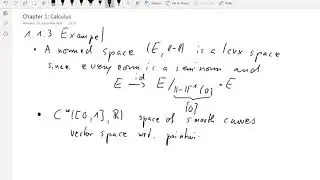 Chapter 1: Calculus
1.1.3 Example
• A normed space (E, ||·||) is a lcvx space
since every norm is a seminorm and
E →id E/||·||⁻¹(0) = E
{0}
• C^∞([0,1], R) space of smooth curves
vector space wrt. pointwi